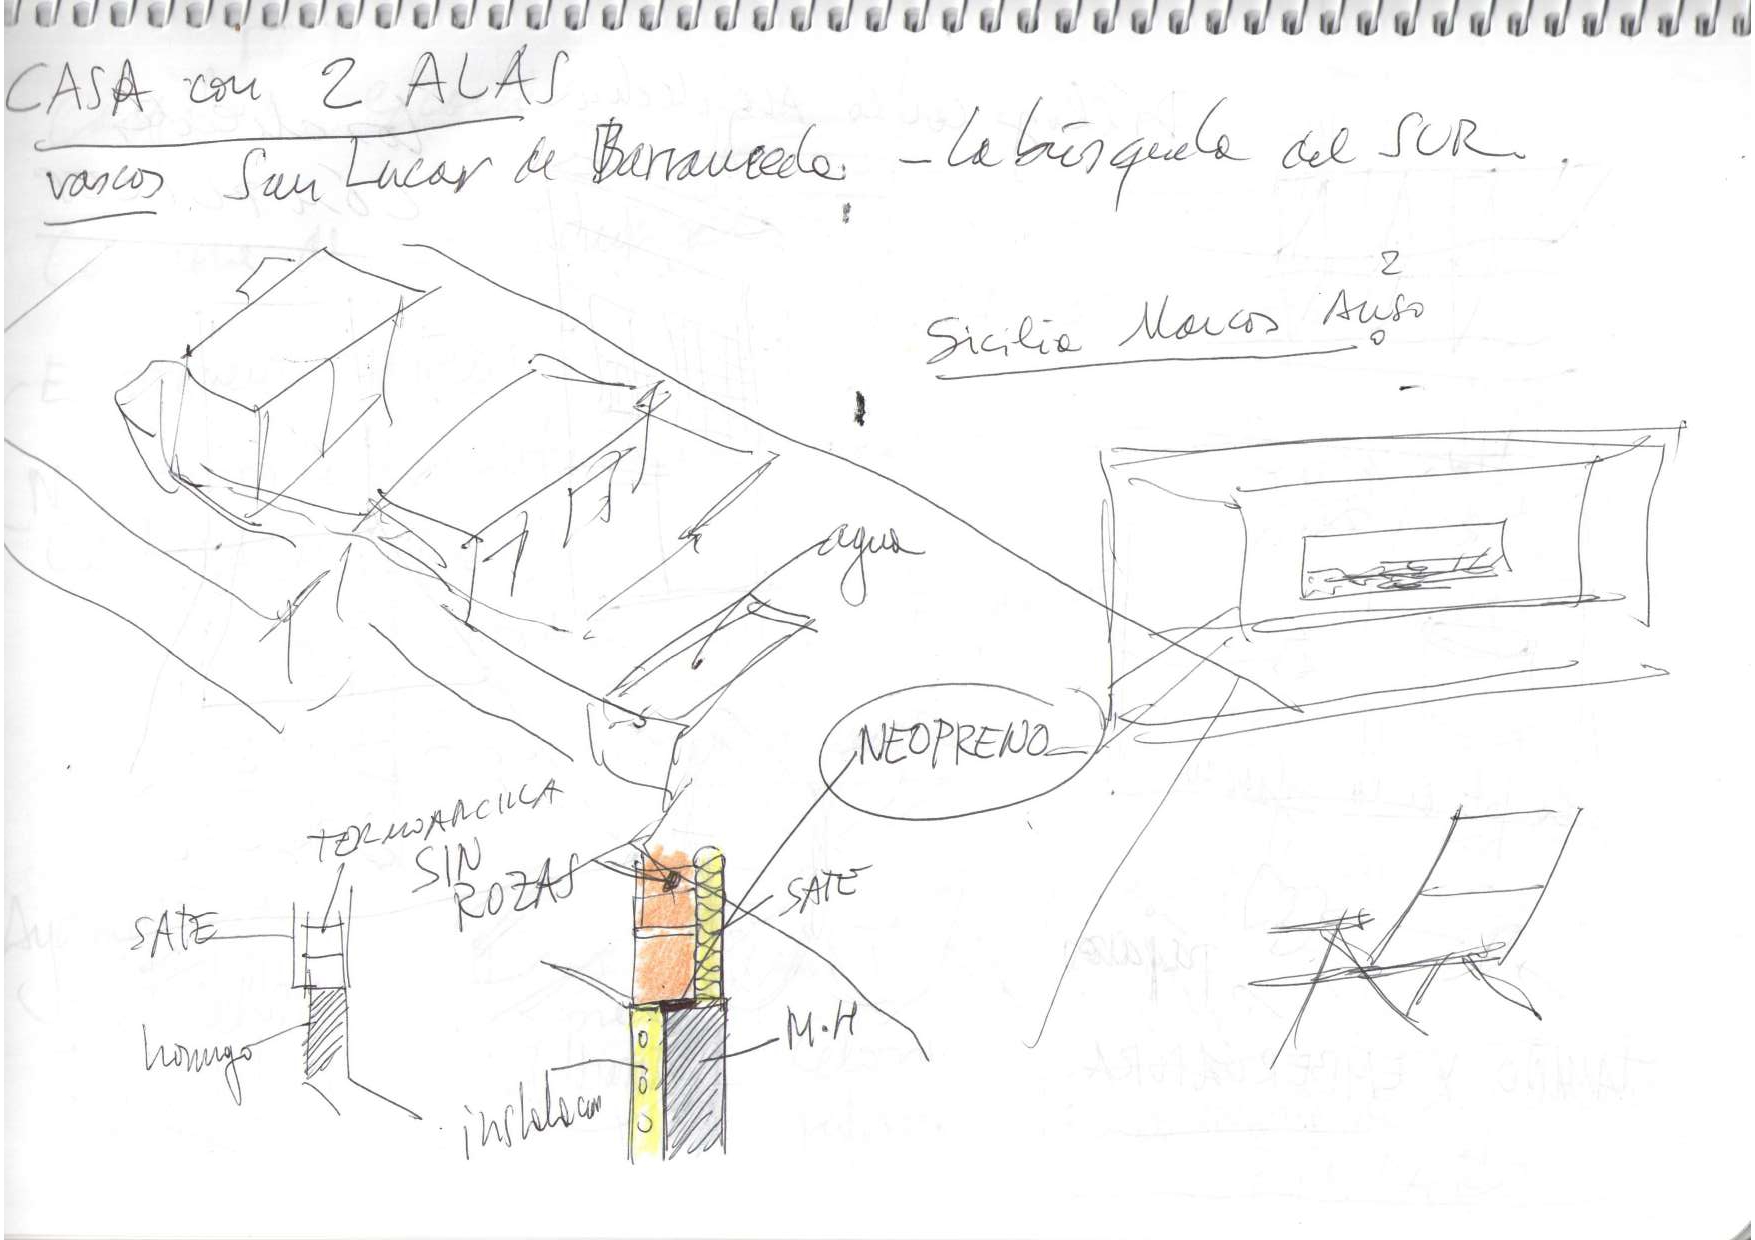 CASA con 2 ALAS
vascos San Lucar de Barrameda. - La búsqueda del SUR.
2
Sicilia Marcos Auso
agua
NEOPRENO
TERMOARCILLA
SIN
ROZAS
SATE
SATE
M.H
hormigo
instalacon